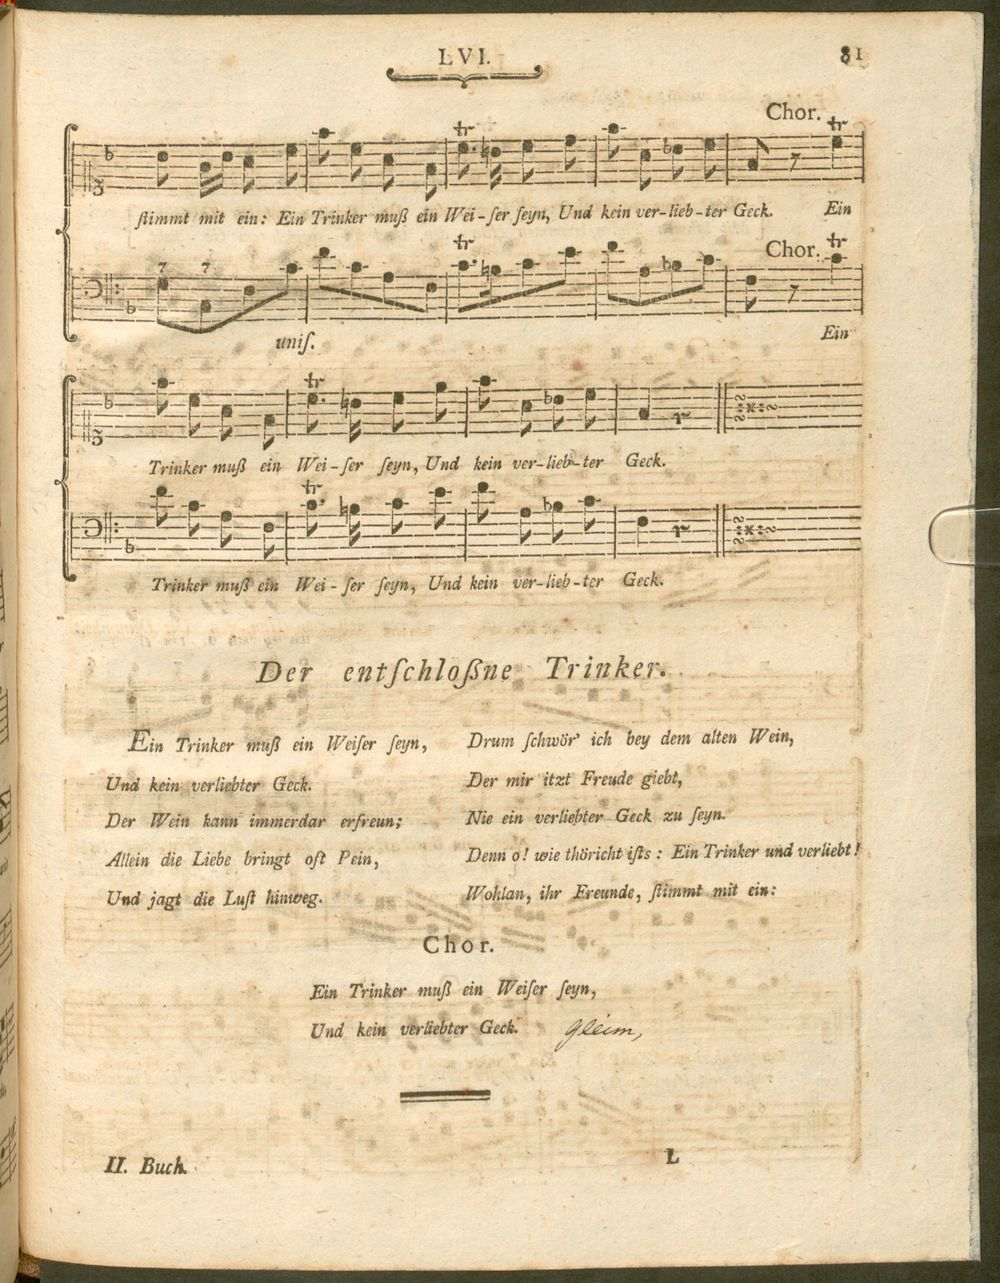 LVI.
81
Chor.
tr
tr
ſtimmt mit ein: Ein Trinker muß ein Wei-ſer ſeyn, Und kein ver-lieb-ter Geck. Ein
tr
Chor. tr
7 7
uniſ.
Ein
tr
Trinker muß ein Wei-ſer ſeyn, Und kein ver-lieb-ter Geck.
tr
Trinker muß ein Wei-ſer ſeyn, Und kein ver-lieb-ter Geck.
Der entſchloßne Trinker.
Ein Trinker muß ein Weiſer ſeyn,
Und kein verliebter Geck.
Der Wein kann immerdar erfreun;
Allein die Liebe bringt oft Pein,
Und jagt die Luſt hinweg.
Drum ſchwör' ich bey dem alten Wein,
Der mir itzt Freude giebt,
Nie ein verliebter Geck zu ſeyn.
Denn o! wie thöricht iſts: Ein Trinker und verliebt!
Wohlan, ihr Freunde, ſtimmt mit ein:
Chor.
Ein Trinker muß ein Weiſer ſeyn,
Und kein verliebter Geck. Gleim,
II. Buch.
L